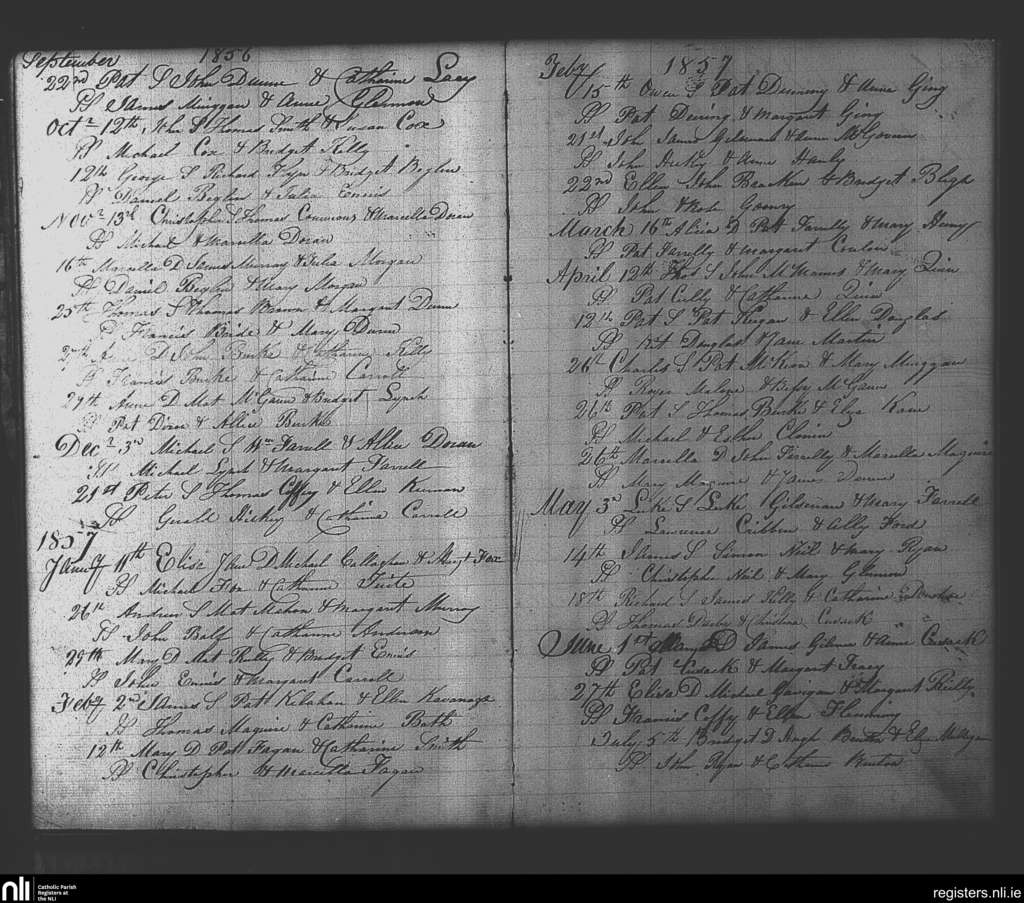 September 1856
22nd Pat S John Dunne & Catharine Lacy
PP James Minggan & Anne Glennon
Octr 12th John S Thomas Smith & Susan Cox
PP Michael Cox & Bridget Kelly
12th George S Richard Fryer & Bridget Beglin
PP Daniel Beglin & Julia Ennis
Novr 13th Christopher S Thomas Commons & Marcella Doran
PP Michael & Marcella Doran
16th Marcella D James Murray & Julia Morgan
PP Daniel Beglin & Mary Morgan
25th Thomas S Thomas & Margaret Dunn
PP Francis & Mary Dunn
27th D John Burke & Catharine Kelly
PP Francis Burke & Catharine Carroll
29th Anne D Mat McGann & Bridget Lynch
PP Pat & Allice Burke
Decr 3rd Michael S Wm Farrell & Alice Doran
PP Michael Lynch & Margaret Farrell
21st Peter S Thomas Coffy & Ellen Kiernan
PP Gerald Hickey & Catharine Carroll
1857
Jany 11th Eliza Jane D Michael Callaghan & Margt Fox
PP Michael Fox & Catharine Tuite
26th Andrew S Mat Mahon & Margaret Murray
PP John Balf & Catharine Anderson
29th Mary D Mat Reilly & Bridget Ennis
PP John Ennis & Margaret Carroll
Feby 2nd James S Patt Kelahan & Ellen Kavanagh
PP Thomas Maguire & Catherine Bath
12th Mary D Pat Fagan & Catharine Smith
PP Christopher & Marcella Fagan
Feby 1857
15th Owen S Pat & Anne Ging
PP Pat & Margaret Ging
21st John James & Anne McGovern
PP John Hickey & Anne Hanly
22nd Ellen John Bracken & Bridget Bligh
PP John & Rose
March 16th Alicia D Pat Farrelly & Mary Henry
PP Pat Farrelly & Margaret Conlan
April 12th Thos S John McManus & Mary Quin
PP Pat Cully & Catharine Quin
12th Pat S Pat Keegan & Ellen Douglas
PP Pat Douglas & Jane Martin
26th Charles S Pat McKeon & Mary Minggan
PP Roger & Biffy McGann
26th Pat S Thomas Burke & Eliza Kane
PP Michael & Esther
26th Marcella D John Farrelly & Marcella Maguire
PP Mary Maguire & James
May 3rd Luke S Luke & Mary Farrell
PP Lawrence Cribbon & Ally Ford
14th James S Simon Neil & Mary Ryan
PP Christopher Neil & Mary Glennon
18th Richard S James Kelly & Catharine
PP Thomas Darby & Christina Cusack
June 1st D James & Anne Cusack
PP Pat Cusack & Margaret Tracy
27th Eliza D Michael Garigan & Margaret Reilly
PP Francis Coffy & Ellen Flemming
July 5th Bridget D Hugh & Eliza
PP John Ryan & Catharine
nli Catholic Parish
Registers at
the NLI
registers.nli.ie